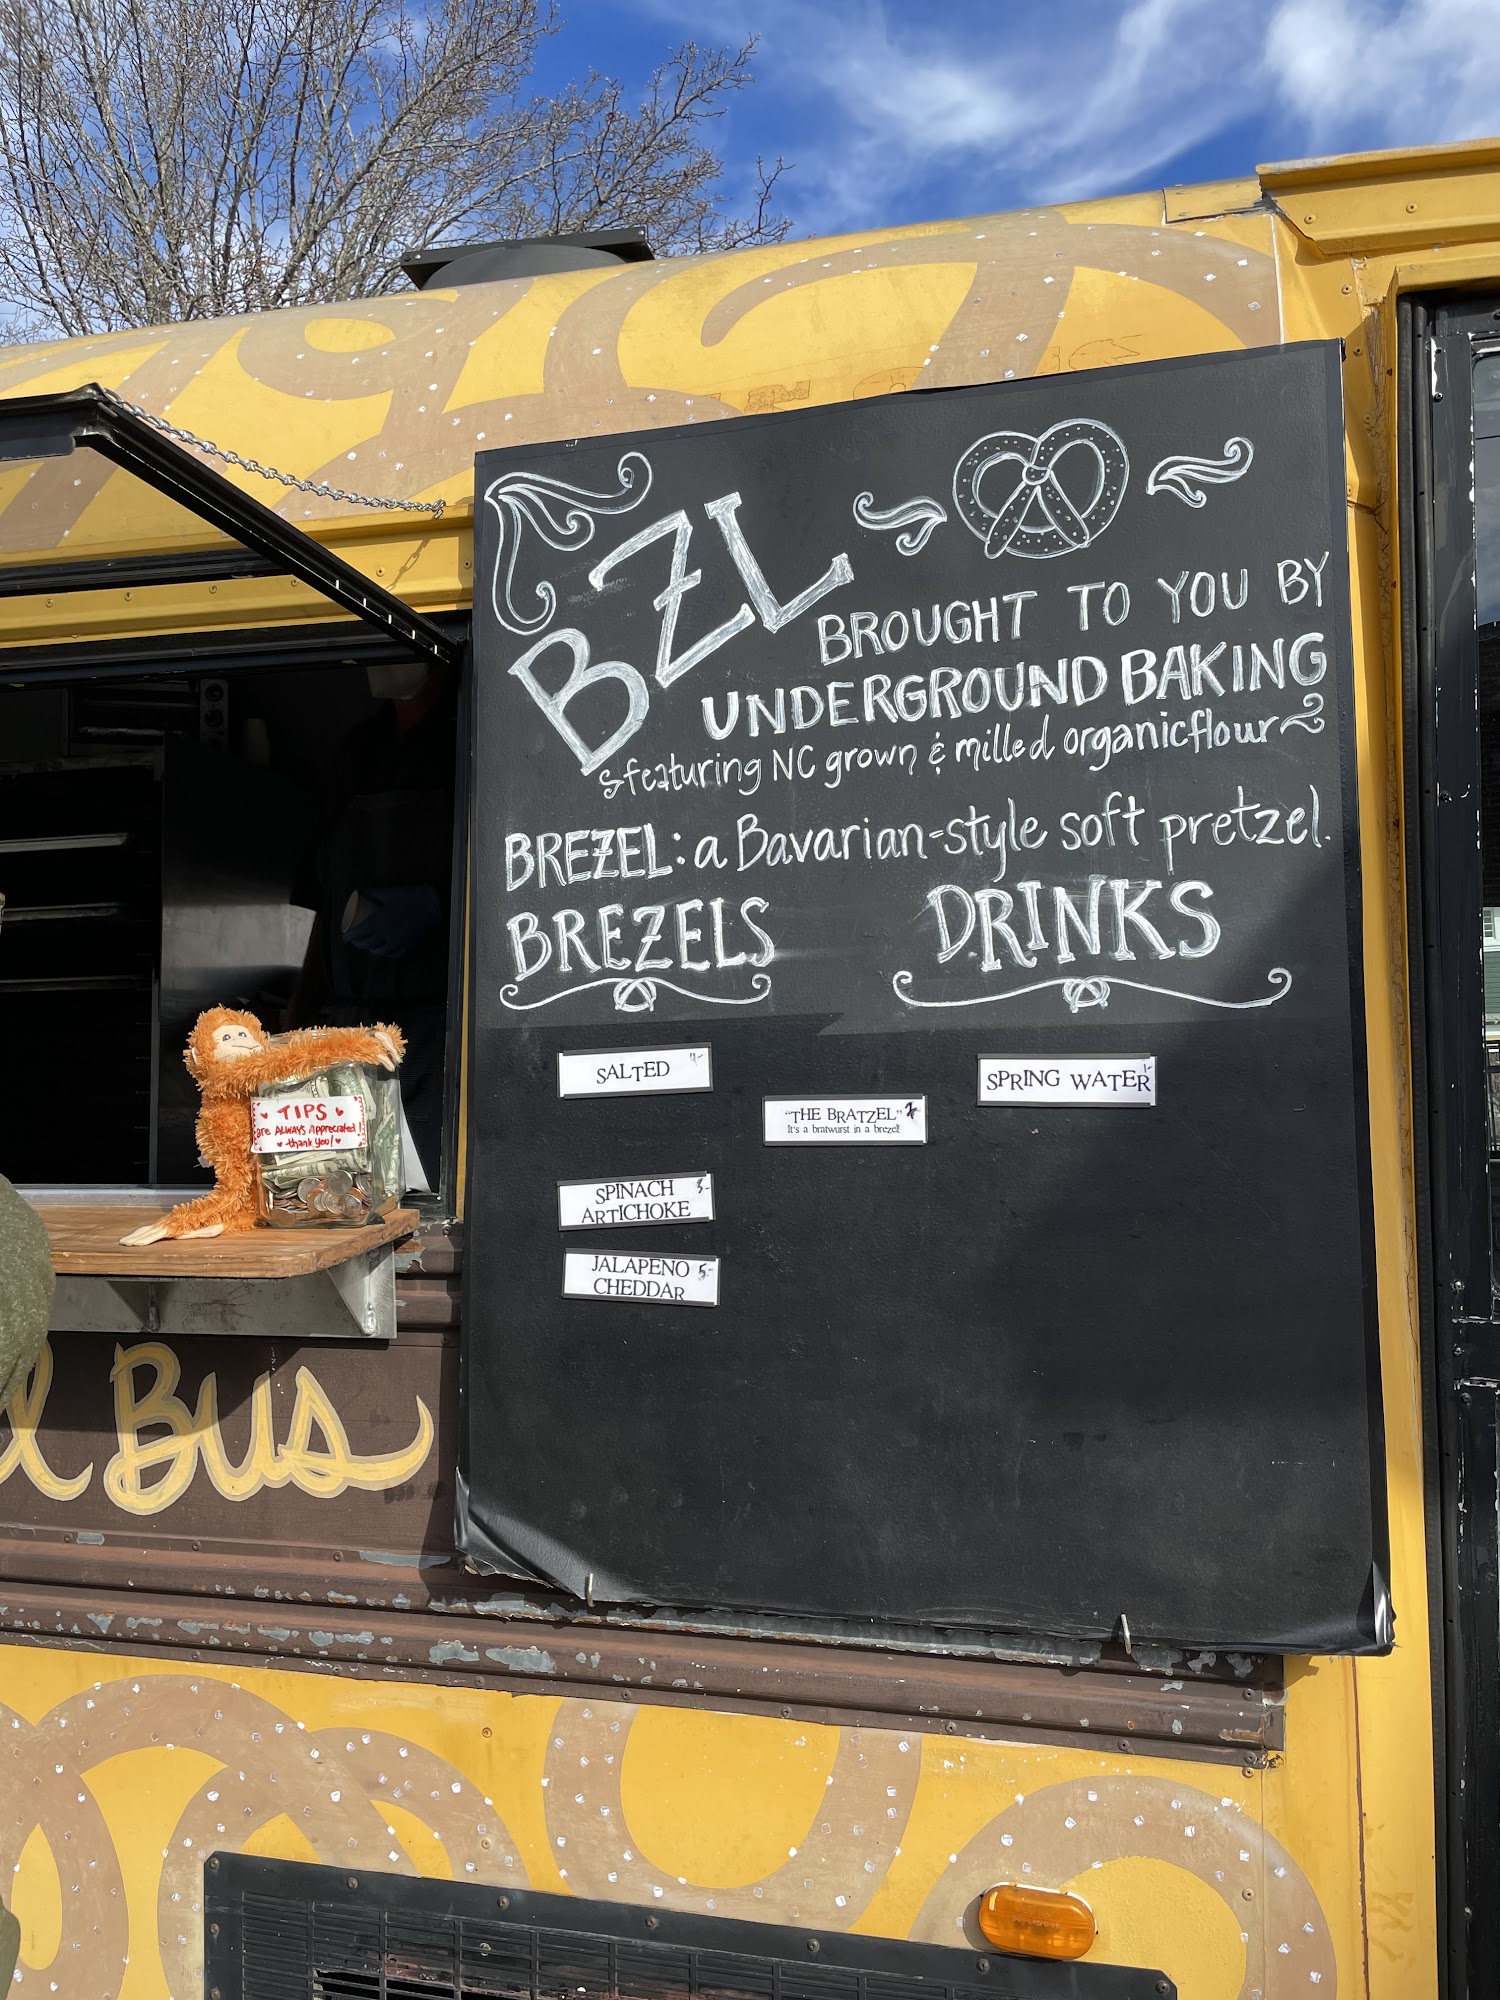 BZL
BROUGHT TO YOU BY
UNDERGROUND BAKING
featuring NC grown & milled organic flour
BREZEL: a Bavarian-style soft pretzel.
BREZELS
DRINKS
SALTED 4-
SPRING WATER 1-
"THE BRATZEL" 7-
It's a bratwurst in a brezel!
SPINACH
ARTICHOKE
JALAPENO 5-
CHEDDAR
TIPS
are ALWAYS Appreciated!
thank you!
Bus